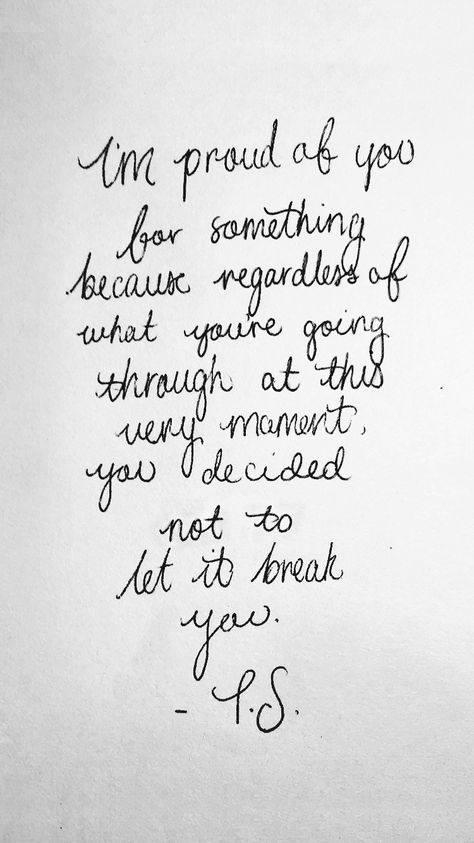 I'm proud of you
for something
because regardless of
what you're going
through at this
very moment,
you decided
not to
let it break
you.
- T.S.